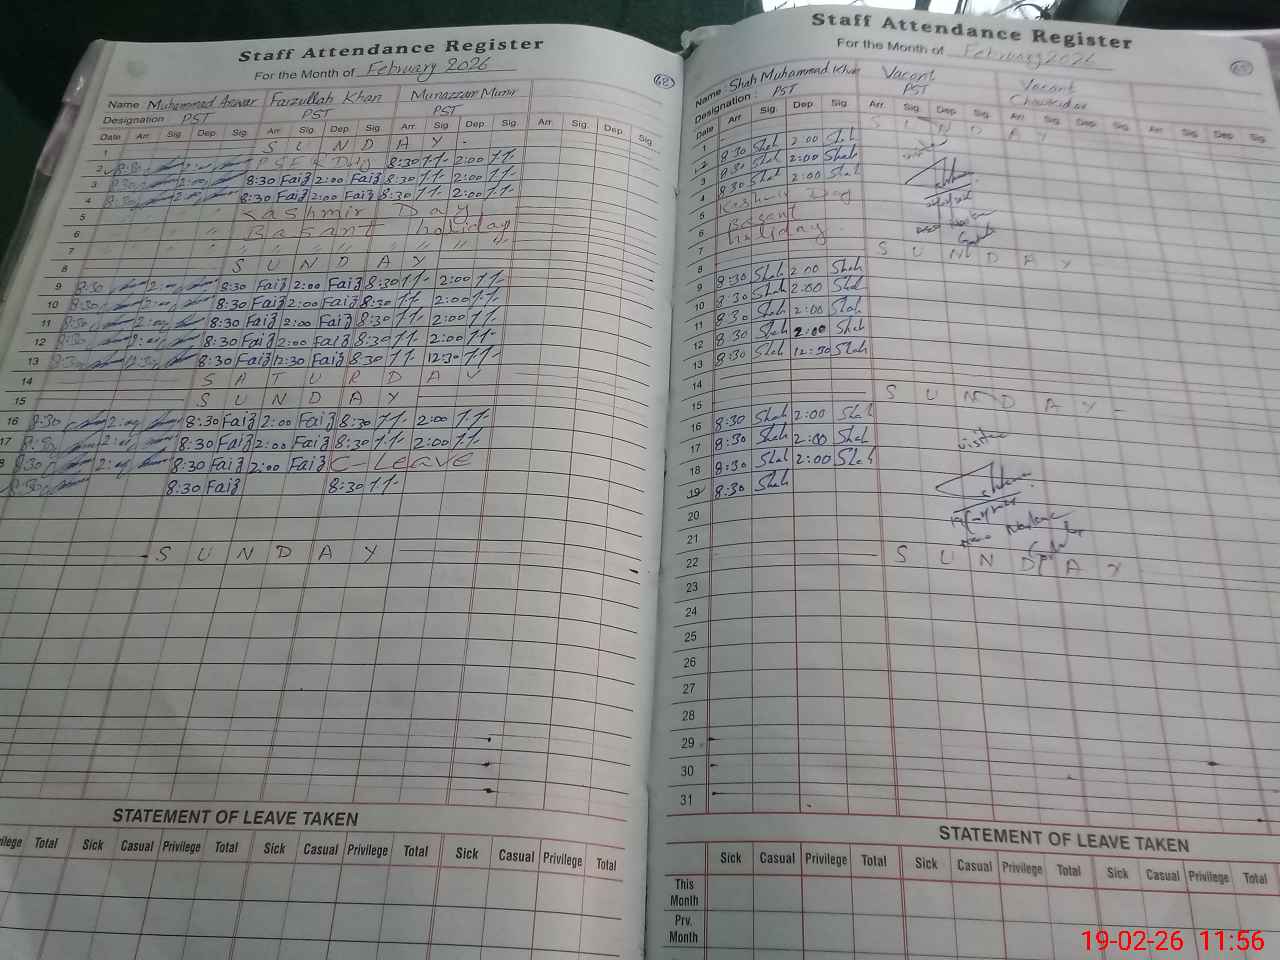 Staff Attendance Register
For the Month of February 2026
68
Name Muhammad Anwar Faizullah Khan Munazzam Munir
Designation PST PST PST
Date Arr. Sig. Dep. Sig. Arr. Sig. Dep. Sig. Arr. Sig. Dep. Sig. Arr. Sig. Dep. Sig.
1 S U N D A Y
2 8:30 8:30 2:00
3 8:30 2:00 8:30 Faiz 2:00 Faiz 8:30 2:00
4 8:30 2:00 8:30 Faiz 2:00 Faiz 8:30 2:00
5 Kashmir Day
6 Basant holiday
7 " " " " " "
8 S U N D A Y
9 8:30 2:00 8:30 Faiz 2:00 Faiz 8:30 2:00
10 8:30 2:00 8:30 Faiz 2:00 Faiz 8:30 2:00
11 8:30 2:00 8:30 Faiz 2:00 Faiz 8:30 2:00
12 8:30 2:00 8:30 Faiz 2:00 Faiz 8:30 2:00
13 8:30 12:30 8:30 Faiz 12:30 Faiz 8:30 12:30
14 S A T U R D A Y
15 S U N D A Y
16 8:30 2:00 8:30 Faiz 2:00 Faiz 8:30 2:00
17 8:30 2:00 8:30 Faiz 2:00 Faiz 8:30 2:00
8 8:30 2:00 8:30 Faiz 2:00 Faiz C-Leave
8:30 8:30 Faiz 8:30
S U N D A Y
STATEMENT OF LEAVE TAKEN
Privilege Total Sick Casual Privilege Total Sick Casual Privilege Total Sick Casual Privilege Total
Staff Attendance Register
For the Month of February 2026
Name: Shah Muhammad Khan Vacant Vacant
Designation: PST PST Chowkidar
Date Arr. Sig. Dep. Sig. Arr. Sig. Dep. Sig. Arr. Sig. Dep. Sig. Arr. Sig. Dep. Sig.
1 S U N D A Y
2 8:30 Shah 2:00 Shah
3 8:30 Shah 2:00 Shah
4 8:30 Shah 2:00 Shah
5 Kashmir Day
6 Basant
7 holiday
8 S U N D A Y
9 8:30 Shah 2:00 Shah
10 8:30 Shah 2:00 Shah
11 8:30 Shah 2:00 Shah
12 8:30 Shah 2:00 Shah
13 8:30 Shah 12:30 Shah
14
15 S U N D A Y
16 8:30 Shah 2:00 Shah
17 8:30 Shah 2:00 Shah
18 8:30 Shah 2:00 Shah
19 8:30 Shah
20
21
22 S U N D A Y
23
24
25
26
27
28
29
30
31
STATEMENT OF LEAVE TAKEN
Sick Casual Privilege Total Sick Casual Privilege Total Sick Casual Privilege Total
This Month
Prv. Month
19-02-26 11:56